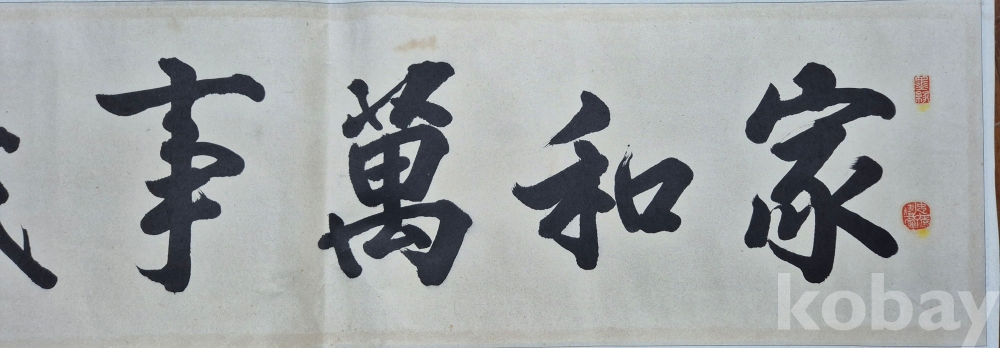 家和萬事
kobay